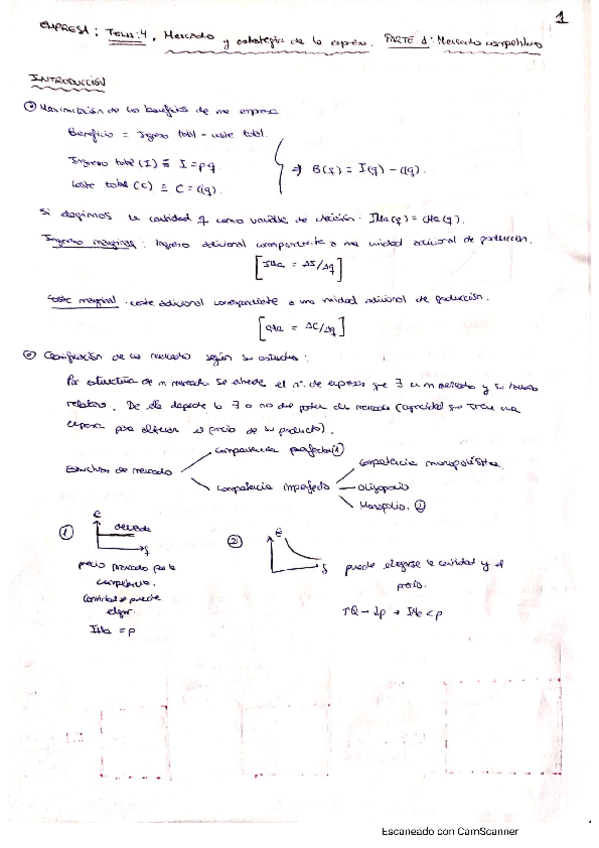 1
EMPRESA: TEMA 4, Mercado y estrategia de la empresa. PARTE 1: Mercado competitivo
INTRODUCCIÓN
Maximización de los beneficios de una empresa
Beneficio = Ingreso total - coste total.
Ingreso total (I) ≡ I = p q
Coste total (C) ≡ C = C(q).
⇒ B(q) = I(q) - C(q).
Si elegimos la cantidad q como variable de decisión: IMa(q) = CMa(q).
Ingreso marginal: Ingreso adicional correspondiente a una unidad adicional de producción.
[IMa = ΔI/Δq]
Coste marginal: coste adicional correspondiente a una unidad adicional de producción.
[CMa = ΔC/Δq]
Clasificación de los mercados según su estructura:
Por estructura de un mercado se entiende el nº de empresas que ∃ en un mercado y su tamaño
relativo. De ella depende la ∃ o no del poder de mercado (capacidad que tiene una
empresa para alterar el precio de su producto).
Estructura de mercado
Competencia perfecta (1)
Competencia imperfecta
Competencia monopolística
Oligopolio
Monopolio. (2)
(1) € demanda q
precio marcado por la
competencia.
Cantidad se puede
elegir.
IMa = p
(2) € q
puede elegirse la cantidad y el
precio.
↑Q → ↓p → IMa < p
Escaneado con CamScanner